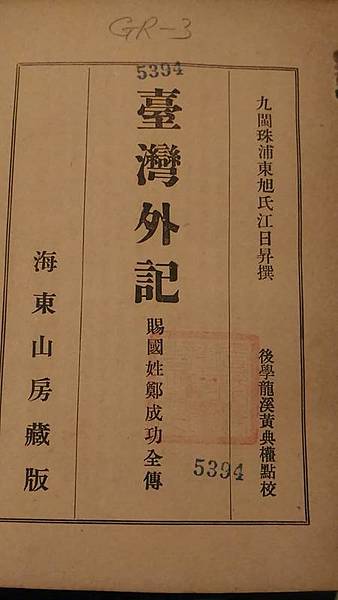 GR-3
5394
九閩珠浦東旭氏江日昇撰
後學龍溪黃典權點校
臺灣外記
賜國姓鄭成功全傳
5394
海東山房藏版